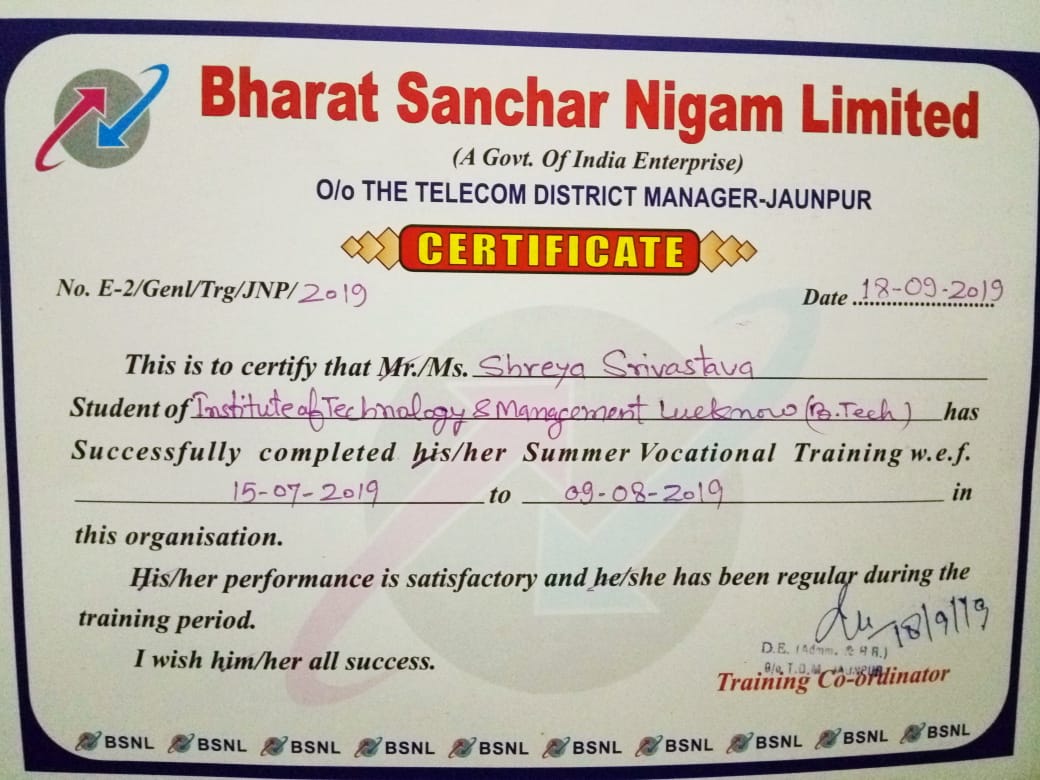 Bharat Sanchar Nigam Limited
(A Govt. Of India Enterprise)
O/o THE TELECOM DISTRICT MANAGER-JAUNPUR
CERTIFICATE
No. E-2/Genl/Trg/JNP/2019 Date 18-09-2019
This is to certify that Mr./Ms. Shreya Srivastava
Student of Institute of Technology & Management Lucknow (B.Tech) has
Successfully completed his/her Summer Vocational Training w.e.f.
15-07-2019 to 09-08-2019 in
this organisation.
His/her performance is satisfactory and he/she has been regular during the
training period.
18/9/19
I wish him/her all success.
D.E. (Admn. & HR.)
O/o T.D.M. JAUNPUR
Training Co-ordinator
BSNL BSNL BSNL BSNL BSNL BSNL BSNL BSNL BSNL BSNL